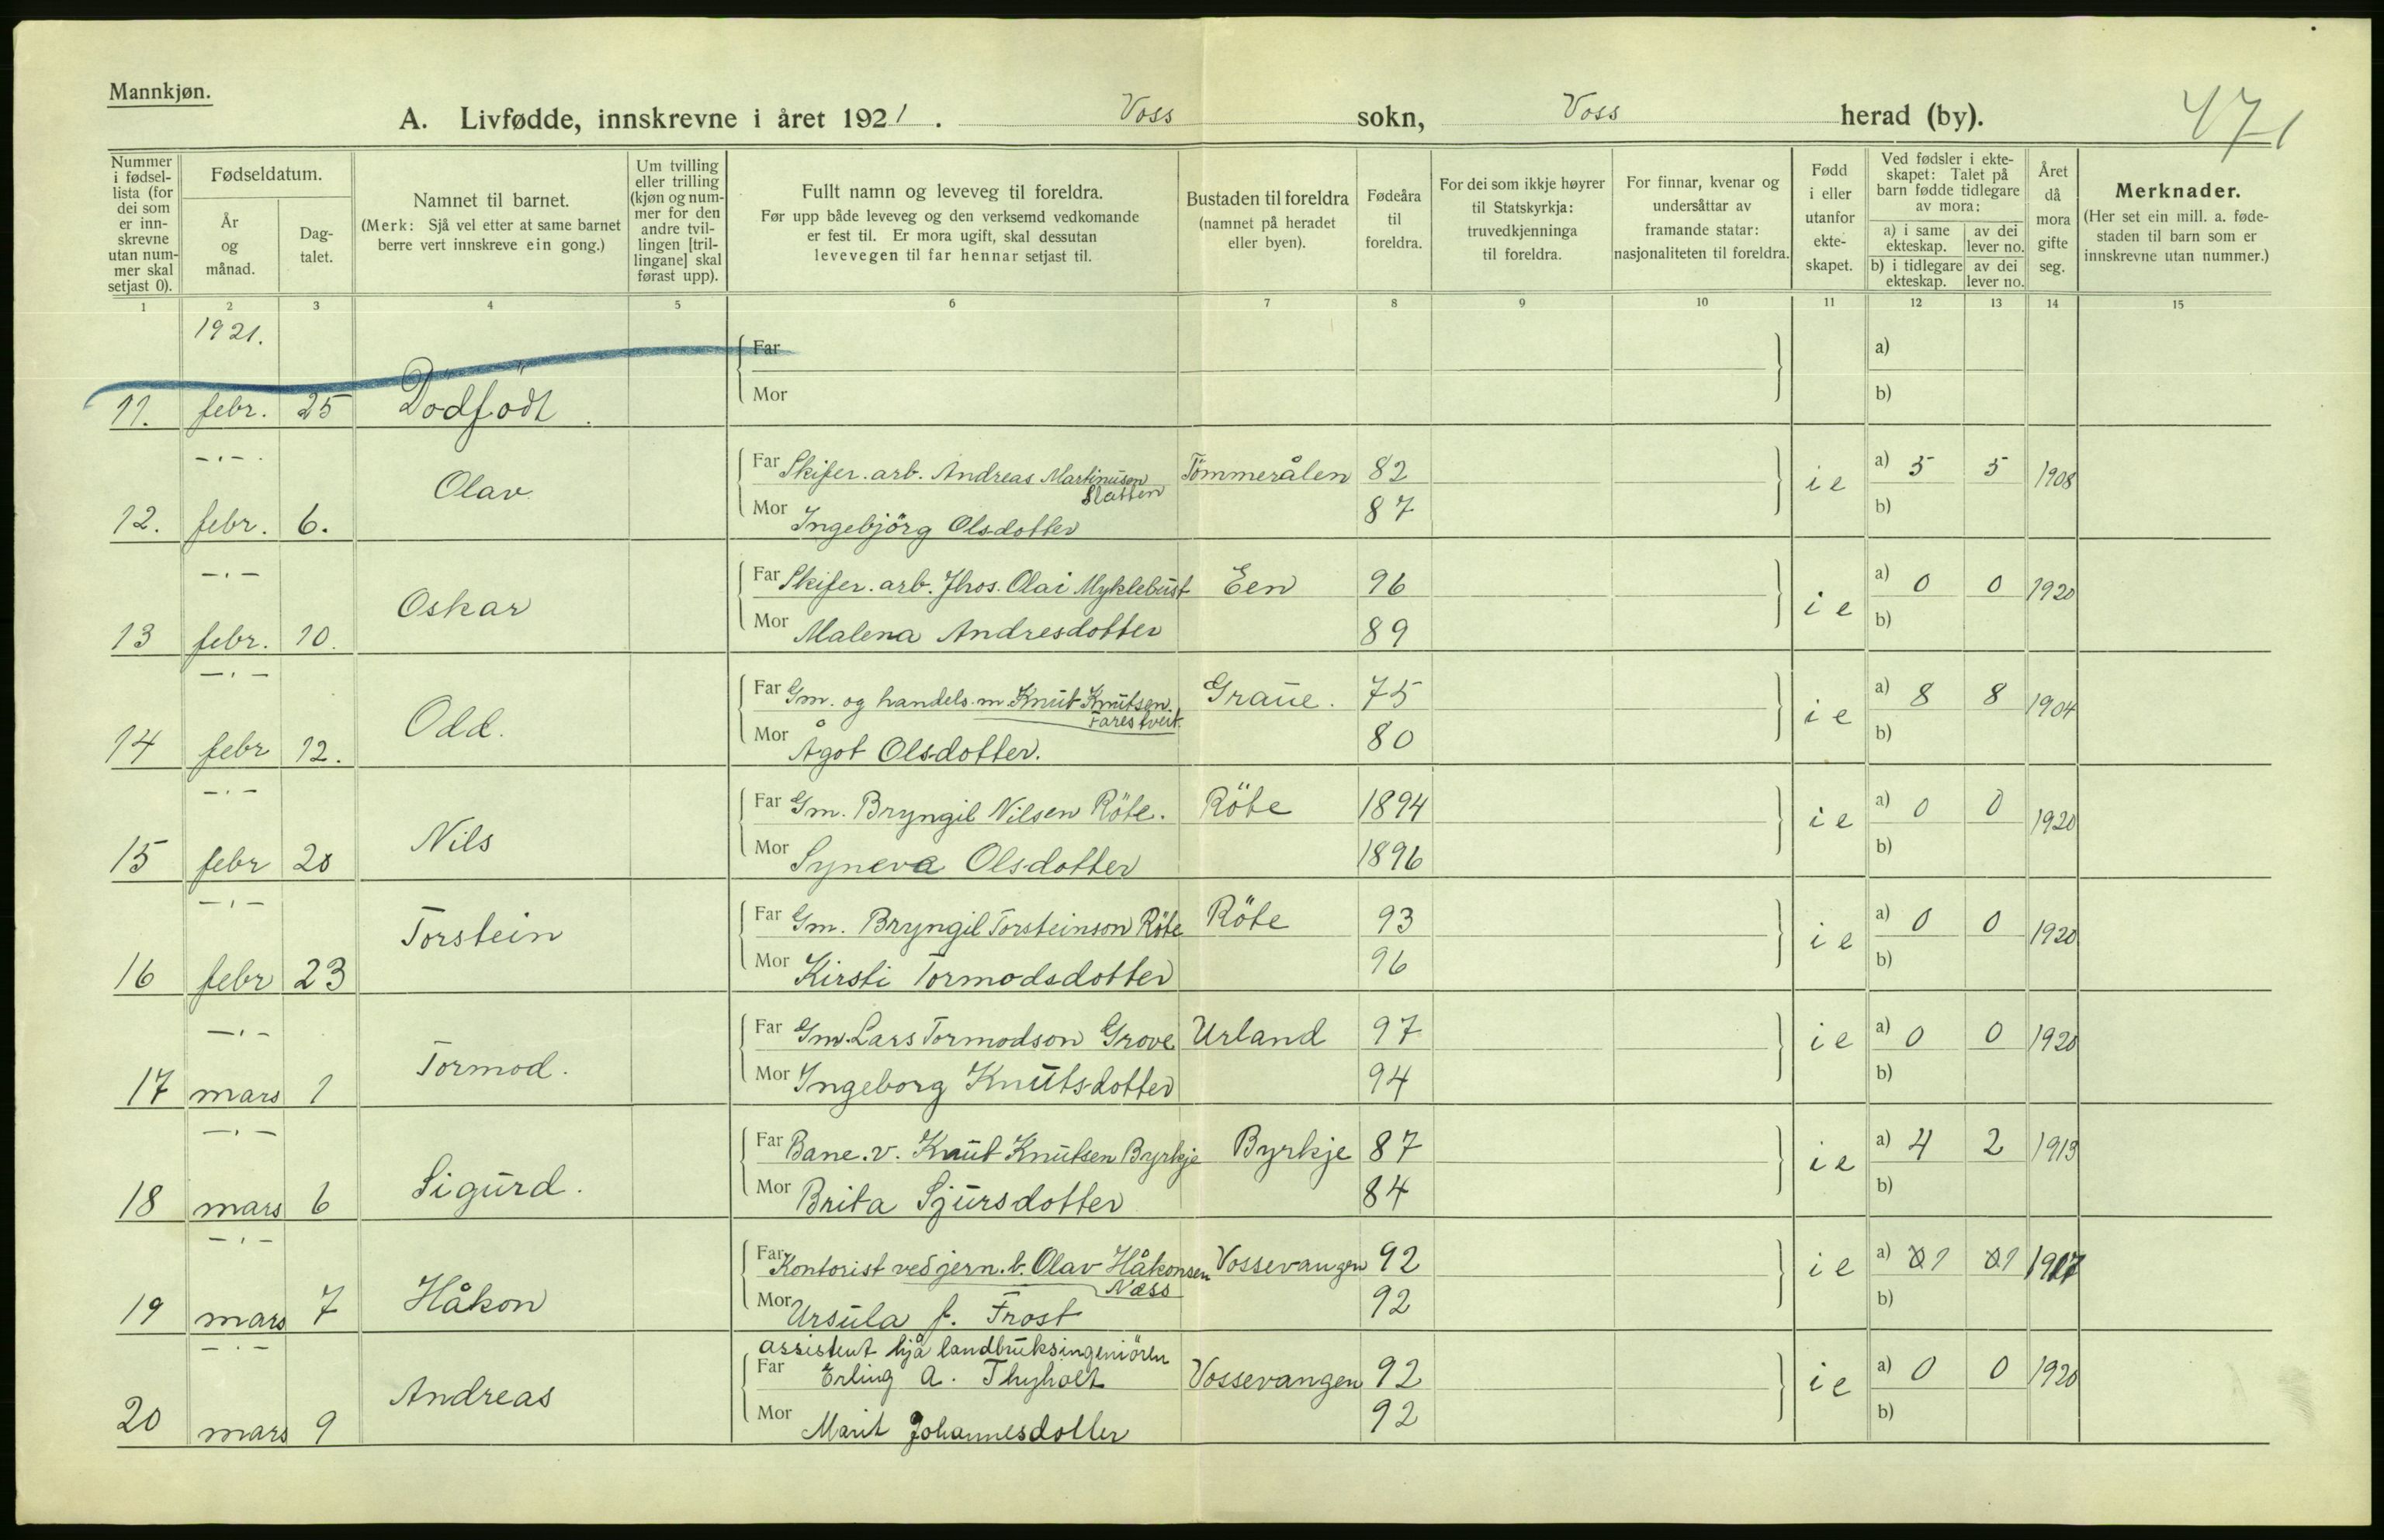 Mannkjøn.
A. Livfødde, innskrevne i året 1921. Voss sokn, Voss herad (by). 471
Nummer i fødsel-lista (for dei som er inn-skrevne utan num-mer skal setjast 0).
Fødseldatum.
År og månad.
Dag-talet.
Namnet til barnet.
(Merk: Sjå vel etter at same barnet berre vert innskreve ein gong.)
Um tvilling eller trilling (kjøn og num-mer for den andre tvil-lingen [tril-lingane] skal førast upp).
Fullt namn og leveveg til foreldra.
Før upp både leveveg og den verksemd vedkomande er fest til. Er mora ugift, skal dessutan levevegen til far hennar setjast til.
Bustaden til foreldra (namnet på heradet eller byen).
Fødeåra til foreldra.
For dei som ikkje høyrer til Statskyrkja: truvedkjenninga til foreldra.
For finnar, kvenar og undersåttar av framande statar: nasjonaliteten til foreldra.
Fødd i eller utanfor ekte-skapet.
Ved fødsler i ekte-skapet: Talet på barn fødde tidlegare av mora:
a) i same ekteskap. av dei lever no.
b) i tidlegare ekteskap. av dei lever no.
Året då mora gifte seg.
Merknader.
(Her set ein mill. a. føde-staden til barn som er innskrevne utan nummer.)
1 2 3 4 5 6 7 8 9 10 11 12 13 14 15
1921.
Far a)
11. febr. 25 Dödfödt.
Mor b)
— " — Far Skifer. arb. Andreas Martinusen Slatten Tömmerålen 82 i e a) 5 5 1908
12. febr. 6. Olav
Mor Ingebjörg Olsdotter 87 b)
— " — Far Skifer. arb. Jhos. Olai Myklebust Een 96 i e a) 0 0 1920
13 febr. 10. Oskar
Mor Malena Andresdotter 89 b)
— " — Far Gm. og handels.m. Knut Knutsen Farestveit Graue. 75 i e a) 8 8 1904
14 febr 12. Odd.
Mor Ågot Olsdotter. 80 b)
— " — Far Gm. Bryngil Nilsen Röte. Röte 1894 i e a) 0 0 1920
15 febr 20 Nils
Mor Syneva Olsdotter 1896 b)
— " — Far Gm. Bryngil Torsteinson Röte Röte 93 i e a) 0 0 1920
16 febr 23 Torstein
Mor Kirsti Tormodsdotter 96 b)
— " — Far Gm. Lars Tormodson Grove Urland 97 i e a) 0 0 1920
17 mars 1 Tormod.
Mor Ingeborg Knutsdotter 94 b)
— " — Far Bane.v. Knut Knutsen Byrkje Byrkje 87 i e a) 4 2 1913
18 mars 6 Sigurd.
Mor Brita Sjursdotter 84 b)
— " — Far Kontorist ved jern.b. Olav Håkonsen Næss Vossevangen 92 i e a) 1 1 1917
19 mars 7 Håkon
Mor Ursula f. Frost 92 b)
— " — assistent hjå landbruksingeniören
Far Erling A. Thyholt Vossevangen 92 i e a) 0 0 1920
20 mars 9 Andreas
Mor Marit Johannesdotter 92 b)